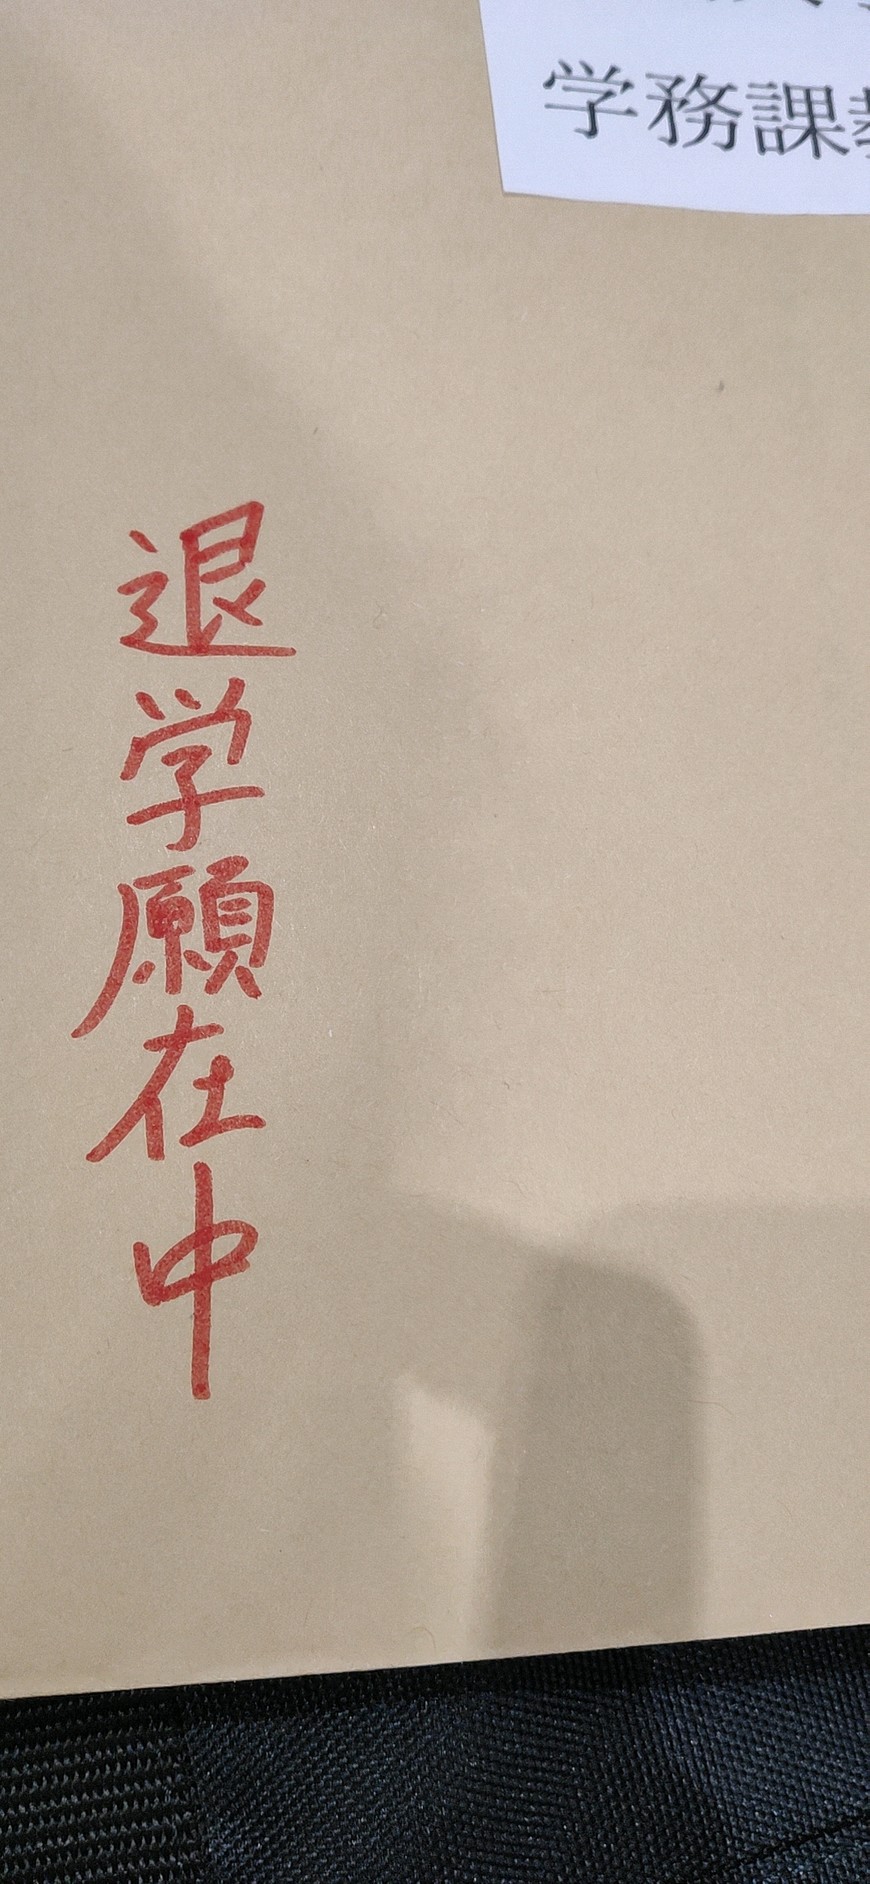 学務課
退学願在中